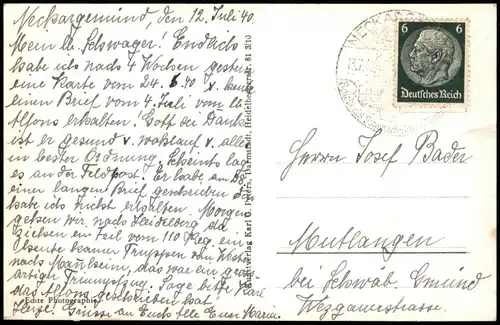 Neckargemünd, den 12. Juli 40.
Mein lb. Schwager! Endlich
habe ich nach 4 Wochen gestern
eine Karte vom 24.6.40 u. heute
einen Brief vom 4. Juli vom lb.
Alfons erhalten! Gott sei Dank
ist er gesund u. wohlauf u. alles
in bester Ordnung. Scheints lag
es an der Feldpost. Er habe am
einen langen Brief geschrieben den
habe ich nicht erhalten. Morgen
gehen wir nach Heidelberg da
ziehen ein Teil vom 110 Reg. ein
kamen Truppen von Westen
nach das war ein groß-
artiger Triumpfzug. Sage bitte Karl
daß Alfons geschrieben hat!
Herzl. Grüsse an Euch alle Eure Maria.
Echte Photographie
Kunstverlag Karl G. Peters, Darmstadt, Heidelbergerstr. 81 3/10
NECKARG
6 6
Deutsches Reich
Herrn Josef Bader
Mutlangen
bei Schwäb. Gmünd
Wezgauerstrasse